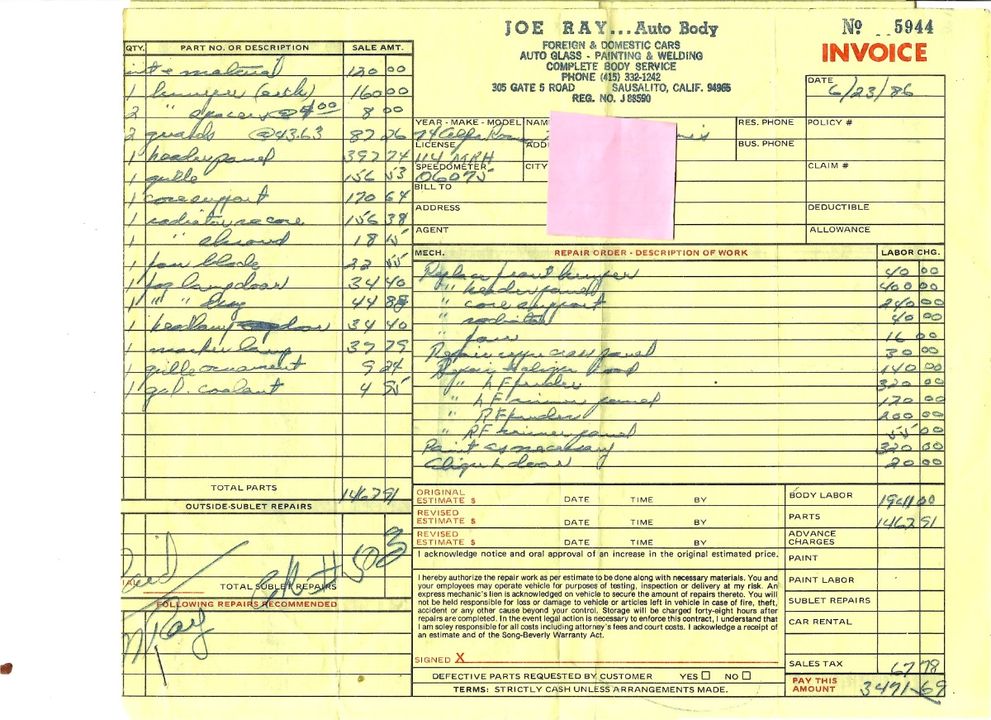 JOE RAY...Auto Body
FOREIGN & DOMESTIC CARS
AUTO GLASS - PAINTING & WELDING
COMPLETE BODY SERVICE
PHONE (415) 332-1242
305 GATE 5 ROAD SAUSALITO, CALIF. 94965
REG. NO. J 88590
No 5944
INVOICE
DATE 6/23/86
QTY. PART NO. OR DESCRIPTION SALE AMT.
& material 120 00
1 bumper 160 00
2 " spacers @ 4.00 8 00
2 guards @ 43.63 87 26
1 header panel 397 74
1 grille 156 53
1 core support 170 64
1 radiator recore 156 38
1 " shroud 18 15
1 fan blade 22 55
1 fog lamp door 34 40
1 " " 44 88
1 headlamp door 34 40
1 marker lamp 39 79
1 grille ornament 9 24
1 gal. coolant 4 95
TOTAL PARTS 1467 91
OUTSIDE-SUBLET REPAIRS
Paid
Ck # 503
TOTAL SUBLET REPAIRS
FOLLOWING REPAIRS RECOMMENDED
Ray
YEAR - MAKE - MODEL 74 Alfa NAME
RES. PHONE
POLICY #
LICENSE 114 MRH
BUS. PHONE
SPEEDOMETER 06075
CITY
CLAIM #
BILL TO
ADDRESS
DEDUCTIBLE
AGENT
ALLOWANCE
MECH. REPAIR ORDER - DESCRIPTION OF WORK LABOR CHG.
Replace front bumper 40 00
" header panel 400 00
" core support 240 00
" radiator 40 00
" fan 16 00
Repair upper cross panel 30 00
Repair & align hood 140 00
" LF fender 320 00
" LF inner panel 120 00
" RF fender 200 00
" RF inner panel 55 00
Paint as necessary 320 00
Align L door 20 00
ORIGINAL ESTIMATE $ DATE TIME BY
REVISED ESTIMATE $ DATE TIME BY
REVISED ESTIMATE $ DATE TIME BY
I acknowledge notice and oral approval of an increase in the original estimated price.
I hereby authorize the repair work as per estimate to be done along with necessary materials. You and
your employees may operate vehicle for purposes of testing, inspection or delivery at my risk. An
express mechanic's lien is acknowledged on vehicle to secure the amount of repairs thereto. You will
not be held responsible for loss or damage to vehicle or articles left in vehicle in case of fire, theft,
accident or any other cause beyond your control. Storage will be charged forty-eight hours after
repairs are completed. In the event legal action is necessary to enforce this contract, I understand that
I am soley responsible for all costs including attorney's fees and court costs. I acknowledge a receipt of
an estimate and of the Song-Beverly Warranty Act.
SIGNED X
DEFECTIVE PARTS REQUESTED BY CUSTOMER YES NO
TERMS: STRICTLY CASH UNLESS ARRANGEMENTS MADE.
BODY LABOR 1941 00
PARTS 1462 91
ADVANCE CHARGES
PAINT
PAINT LABOR
SUBLET REPAIRS
CAR RENTAL
SALES TAX 67 78
PAY THIS AMOUNT 3471-69